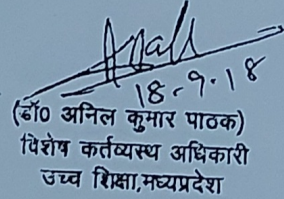 18.9.18
(डॉ0 अनिल कुमार पाठक)
विशेष कर्तव्यस्थ अधिकारी
उच्च शिक्षा,मध्यप्रदेश